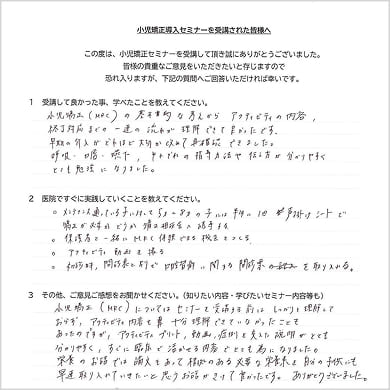 小児矯正導入セミナーを受講された皆様へ
この度は、小児矯正セミナーを受講して頂き誠にありがとうございました。
皆様の貴重なご意見をいただきたいと存じますので
恐れ入りますが、下記の質問へご回答いただければ幸いです。
1 受講して良かった事、学べたことを教えてください。
小児矯正(MRC)の基本的な考え方からアクティビティの内容、
終了対応までの一連の流れが理解できて良かったです。
早期の介入がどれほど大切か改めて再確認できました。
呼吸・口唇・嚥下、それぞれの指導方法や伝え方が分かりやすく
とても勉強になりました。
2 医院ですぐに実践していくことを教えてください。
メンテナンスで通っている子に対して5才~8才の子には
矯正が必要かどうか
保護者と一緒にMRC体験できる機会をつくる
アクティビティ動画を撮る
初診時、問診票と別で口腔習癖に関する問診票を取り入れる。
3 その他、ご意見ご感想をお聞かせください。(知りたい内容・学びたいセミナー内容等も)
小児矯正(MRC)についてはセミナーを受講する前はしっかりと理解して
おらず、アクティビティ内容も十分理解できていなかったことも
あったのですが、アクティビティプリント、動画、症例を交えた説明がとても
分かりやすく、すぐに臨床で活かせる内容でとても為になりました。
栄養のお話では論文もあって根拠のある大事な栄養素を自分の子供にも
早速取り入れていきたいと思うお話がきけて良かったです。ありがとうございました。